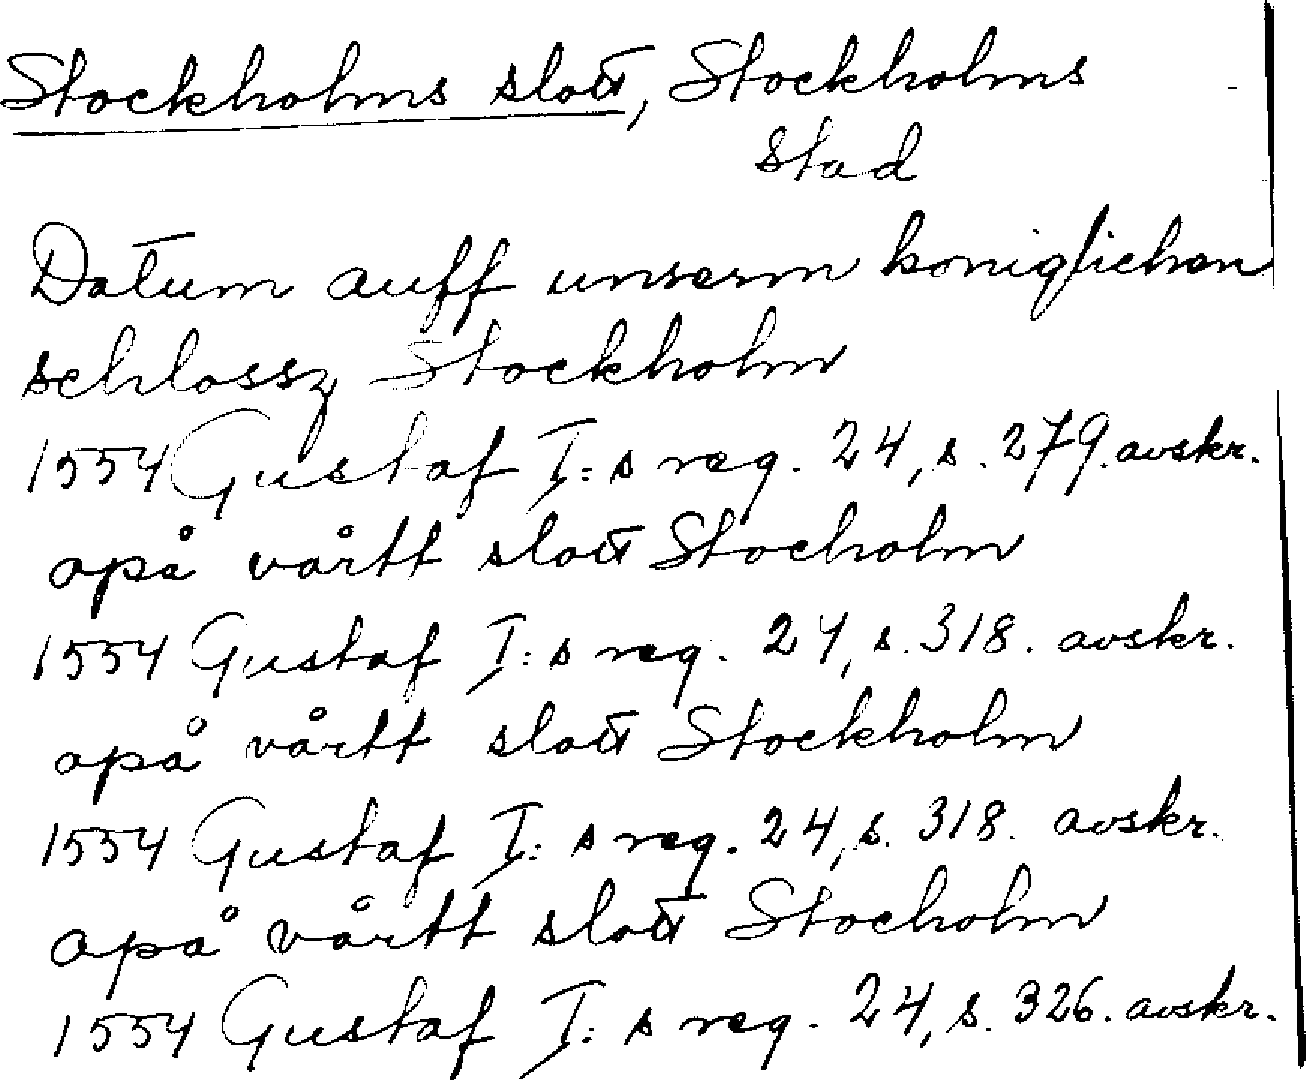 Stockholms slott, Stockholms
stad
Datum auff unserm koniglichen
schlossz Stockholm
1554 Gustaf I:s reg. 24, s. 279. avskr.
opå vårtt slott Stocholm
1554 Gustaf I:s reg. 24, s. 318. avskr.
opå vårtt slott Stockholm
1554 Gustaf I:s reg. 24, s. 318. avskr.
opå vårtt slott Stocholm
1554 Gustaf I:s reg. 24, s. 326. avskr.